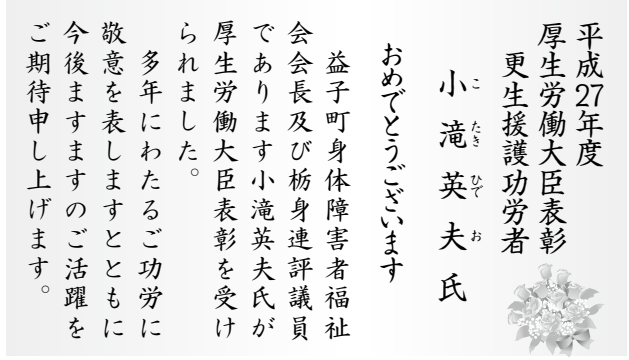 平成27年度
厚生労働大臣表彰
更生援護功労者
小滝英夫氏
こたきひでお
おめでとうございます
益子町身体障害者福祉
会会長及び栃身連評議員
であります小滝英夫氏が
厚生労働大臣表彰を受け
られました。
多年にわたるご功労に
敬意を表しますとともに
今後ますますのご活躍を
ご期待申し上げます。